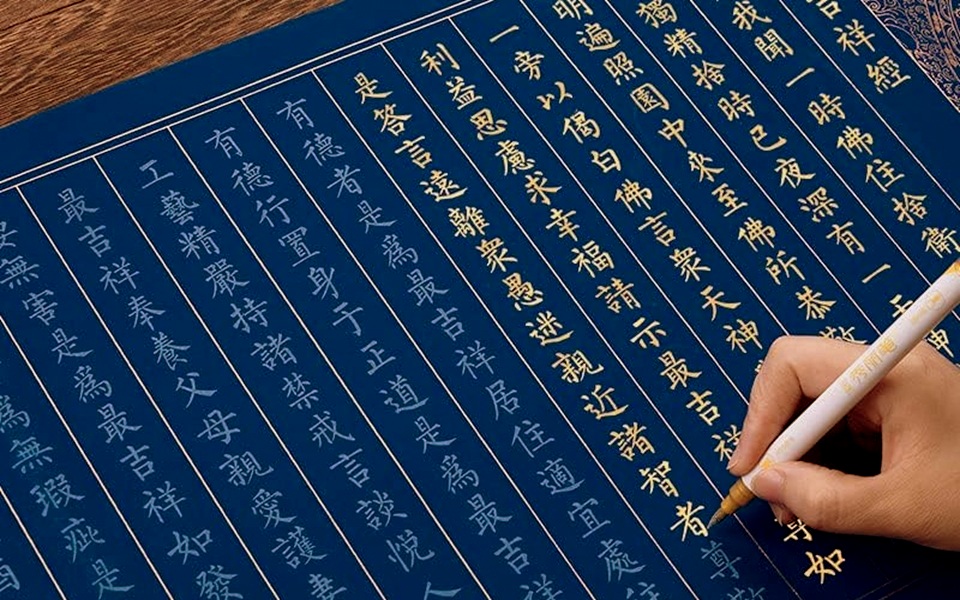 吉祥經
我聞一時佛住捨衛
獨精捨時已夜深有一天神
明遍照園中來至佛所恭敬
一旁以偈白佛言衆天神
利益思慮求幸福請示最吉祥尊如
是答言遠離衆愚迷親近諸智者尊
有德者是爲最吉祥居住適宜處
有德行置身于正道是爲最吉祥
工藝精嚴持諸禁戒言談悅人
最吉祥奉養父母親愛護妻
安無害是爲最吉祥如發
爲無瑕疵是